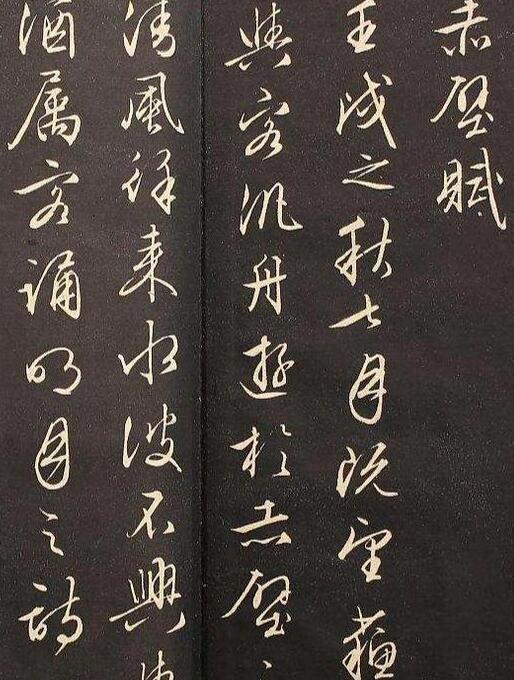 赤壁賦
壬戌之秋七月既望蘇
與客汎舟遊於赤壁
清風徐來水波不興
酒属客誦明月之詩